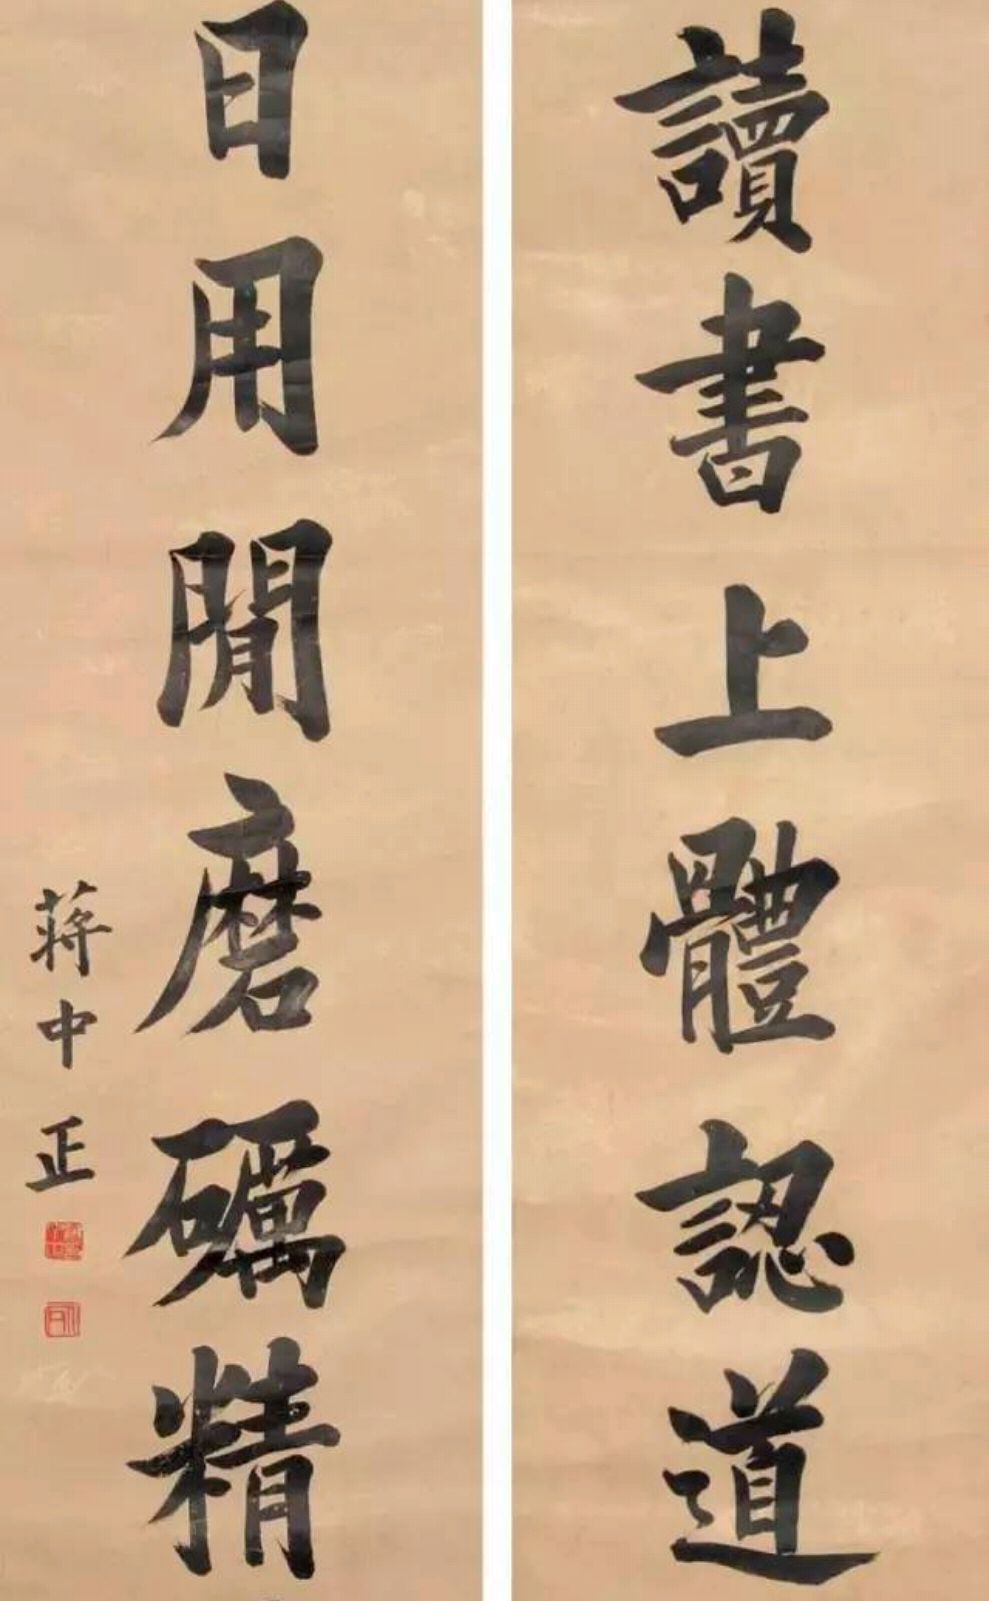 讀書上體認道
日用閒磨礪精
蔣中正